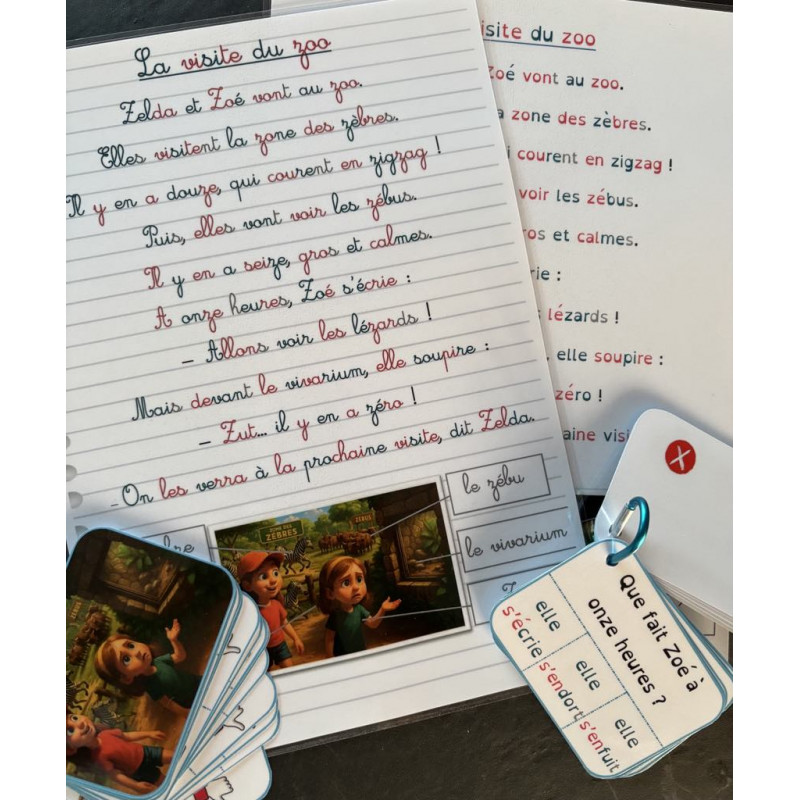 La visite du zoo
Zelda et Zoé vont au zoo.
Elles visitent la zone des zèbres.
Il y en a douze, qui courent en zigzag !
Puis, elles vont voir les zébus.
Il y en a seize, gros et calmes.
A onze heures, Zoé s'écrie :
– Allons voir les lézards !
Mais devant le vivarium, elle soupire :
– Zut... il y en a zéro !
– On les verra à la prochaine visite, dit Zelda.
le zébu
le vivarium
ZONE DES
ZÈBRES
ZEBUS
du zoo
Zoé vont au zoo.
zone des zèbres.
courent en zigzag !
voir les zébus.
et calmes.
lézards !
elle soupire :
zéro !
Que fait Zoé à
onze heures ?
elle
s'écrie
elle
s'endort
elle
s'enfuit